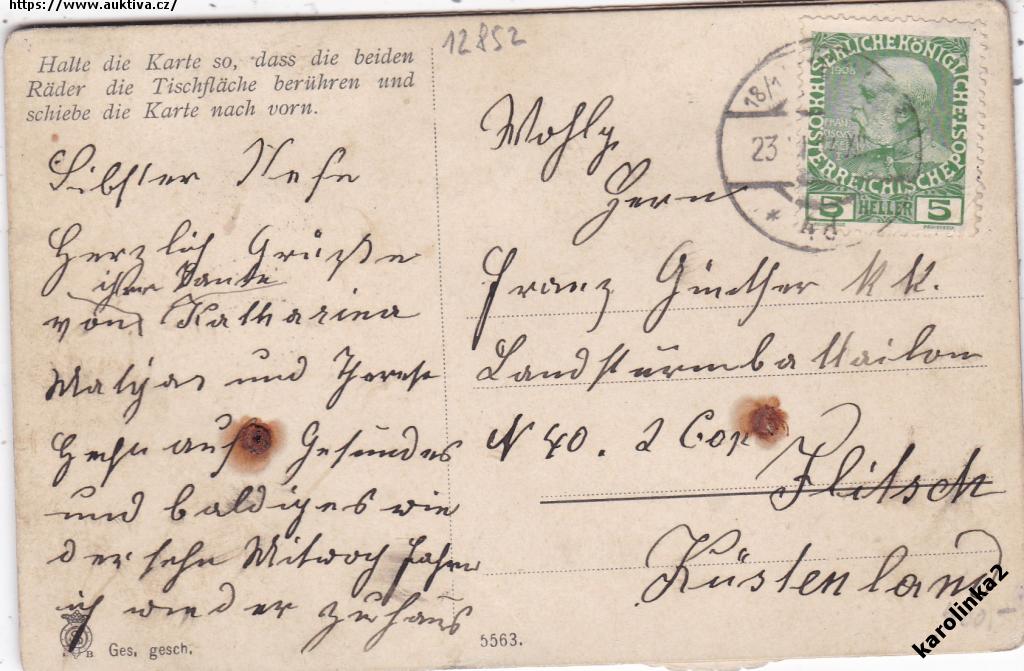 https://www.auktiva.cz/
12852
Halte die Karte so, dass die beiden
Räder die Tischfläche berühren und
schiebe die Karte nach vorn.
Libster Nefe
Herzlich Grüße
ihrer Tante
von Katharina
und Therese
auf Gesundes
und baldiges wie
der sehn Mitwoch fahre
ich wieder zuhaus
Ges. gesch.
5563.
Wohlg
Herrn
Franz Günther k k.
Landsturmbattailon
N 40. 2 Cop
Flitsch
Küstenland
KAISERLICHEKÖNIGLICHE
POST
ÖSTERREICHISCHE
1908
5 HELLER 5
18/1
23
karolinka2